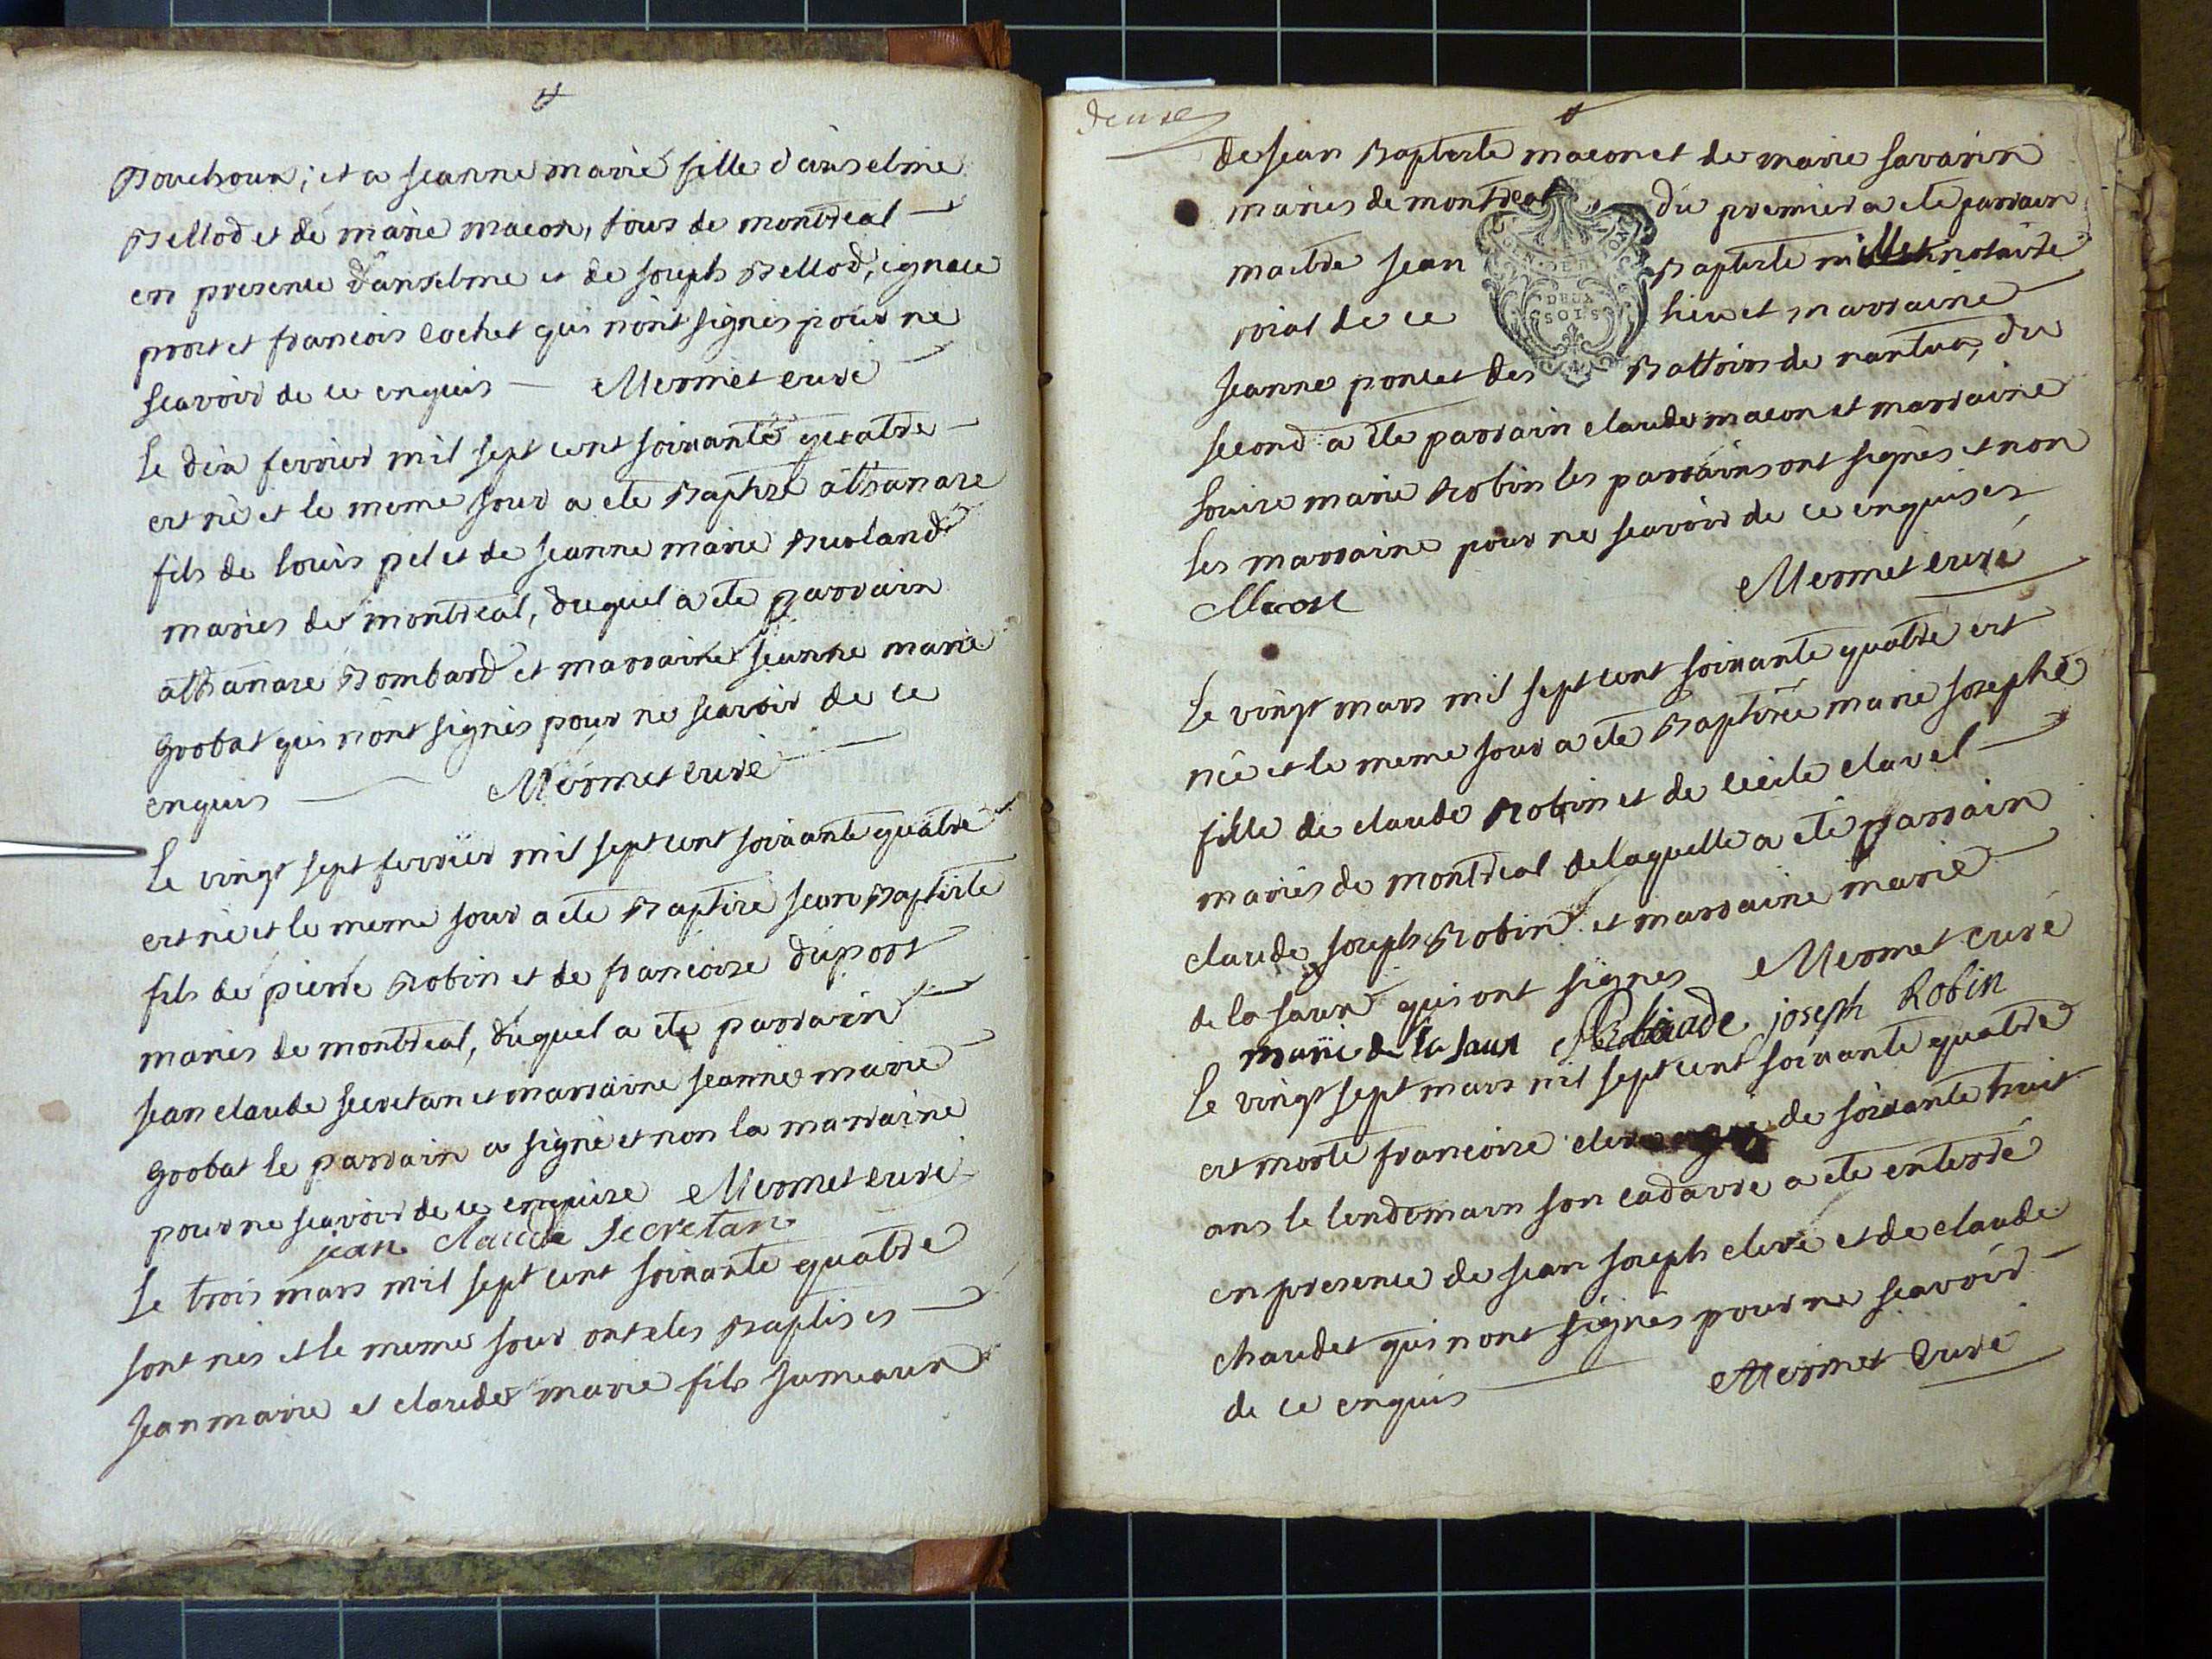 Bouchoux; et a jeanne marie fille d'anselme
Bellod et de marie macon, tous de montreal
en presence d'anselme et de joseph Bellod, ignace
prost et francois cochet qui n'ont signés pour ne
scavoir de ce enquis Mermet curé
le dix fevrier mil sept cent soixante quatre
est né et le meme jour a ete Baptisé athanase
fils de louis pilet de jeanne marie Burland
mariés de montreal, duquel a ete parrain
athanase Bombard et marraine jeanne marie
Grobat qui n'ont signés pour ne scavoir de ce
enquis Mermet curé
le vingt sept fevrier mil sept cent soixante quatre
est né et le meme jour a ete Baptisé jean Baptiste
fils de pierre Robin et de francoise duport
mariés de montreal, duquel a ete parrain
jean claude secretan et marraine jeanne marie
Grobat le parrain a signé et non la marraine
pour ne scavoir de ce enquise Mermet curé
jean claude secretan
le trois mars mil sept cent soixante quatre
sont nés et le meme jour ont etes Baptisés
jean marie et claude marie fils jumeaux
deuxe
de jean Baptiste macon et de marie savarin
mariés de montreal du premier a ete parrain
maitre jean Baptiste notaire
roial de ce lieu et marraine
DEUX
SOLS
jeanne poncet des Battoirs de nantua, du
second a ete parrain claude macon et marraine
louise marie Robin les parrains ont signés et non
les marraine pour ne scavoir de ce enquises
Mermet curé
le vingt mars mil sept cent soixante quatre est
née et le meme jour a ete Baptisée marie josephe
fille de claude Robin et de cecile clavel
mariés de montreal de laquelle a ete parrain
claude joseph Robin et marraine marie
de la saux qui ont signes Mermet curé
marie de la saux claude joseph Robin
le vingt sept mars mil sept cent soixante quatre
est morte francoise de soixante huit
ans le lendemain son cadavre a ete enterré
en presence de jean joseph clere et de claude
chaudet qui n'ont signés pour ne scavoir
de ce enquis Mermet curé